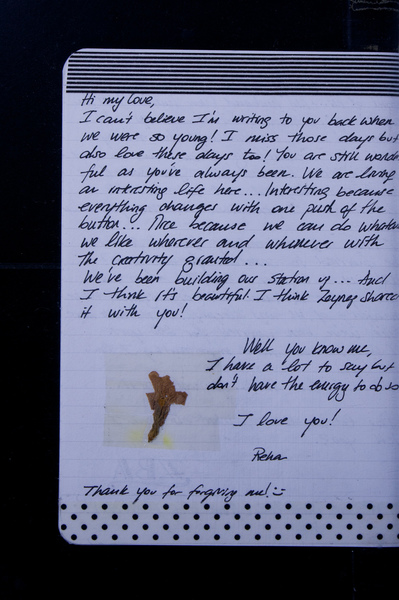 Hi my love,
I can't believe I'm writing to you back when
we were so young! I miss those days but
also love these days too! You are still wond
ful as you've always been. We are living
an interesting life here... Interesting because
everything changes with one push of the
button... Nice because we can do whatev
we like wherever and whenever with
the creativity granted...
We've been building our station up... And
I think it's beautiful. I think Zayneg shared
it with you!
Well you know me,
I have a lot to say but
don't have the energy to do so
I love you!
Thank you for forgiving me! :)